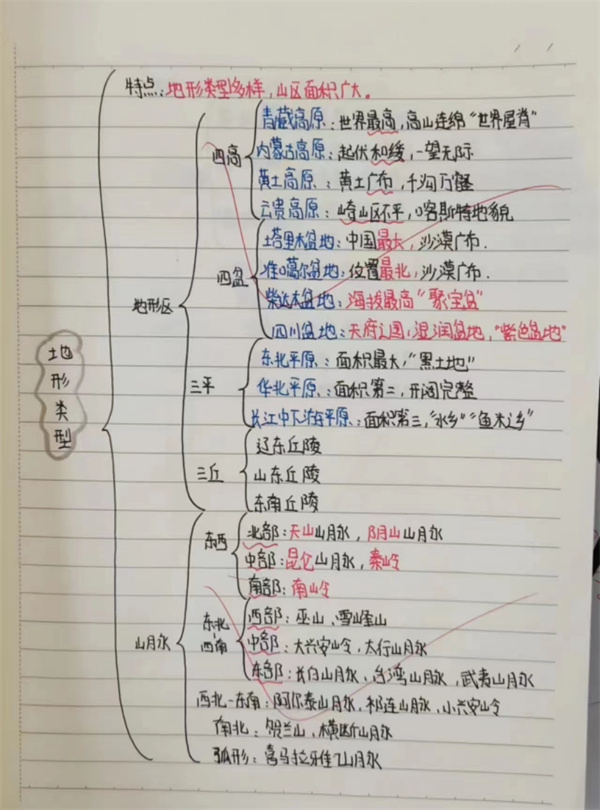 特点：地形类型多样，山区面积广大。
青藏高原：世界最高，高山连绵“世界屋脊”
四高
内蒙古高原：起伏和缓，一望无际
黄土高原：黄土广布，千沟万壑
云贵高原：崎山区不平，喀斯特地貌
塔里木盆地：中国最大，沙漠广布．
四盆
准噶尔盆地：位置最北，沙漠广布．
柴达木盆地：海拔最高“聚宝盆”
地形区
四川盆地：天府之国，湿润盆地，“紫色盆地”
地形类型
东北平原：面积最大，“黑土地”
三平
华北平原：面积第二，开阔完整
长江中下游平原：面积第三，“水乡”“鱼米之乡”
辽东丘陵
三丘
山东丘陵
东南丘陵
东西
北部：天山山脉，阴山山脉
中部：昆仑山脉，秦岭
南部：南岭
东北-西南
西部：巫山、雪峰山
山脉
中部：大兴安岭，太行山脉
东部：长白山脉，台湾山脉，武夷山脉
西北-东南：阿尔泰山脉，祁连山脉，小兴安岭
南北：贺兰山，横断山脉
弧形：喜马拉雅山脉